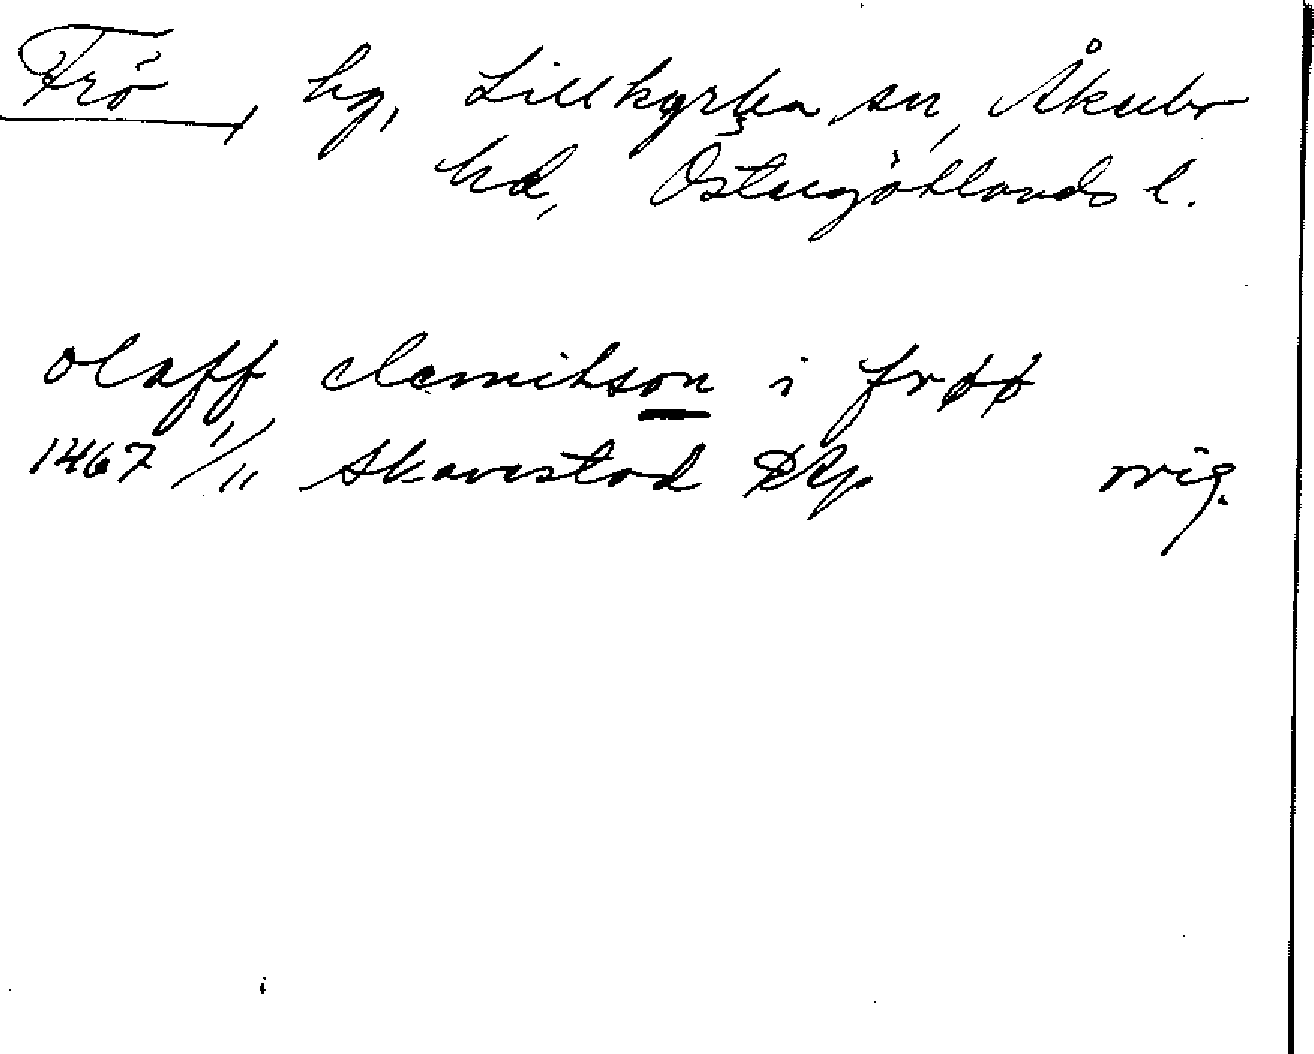 Frö, hg, Lillkyrka sn, Åkerbo
hd, Östergötlands l.
olaff clemitson i frøø
1467 1/11 Skavestad DRp orig.